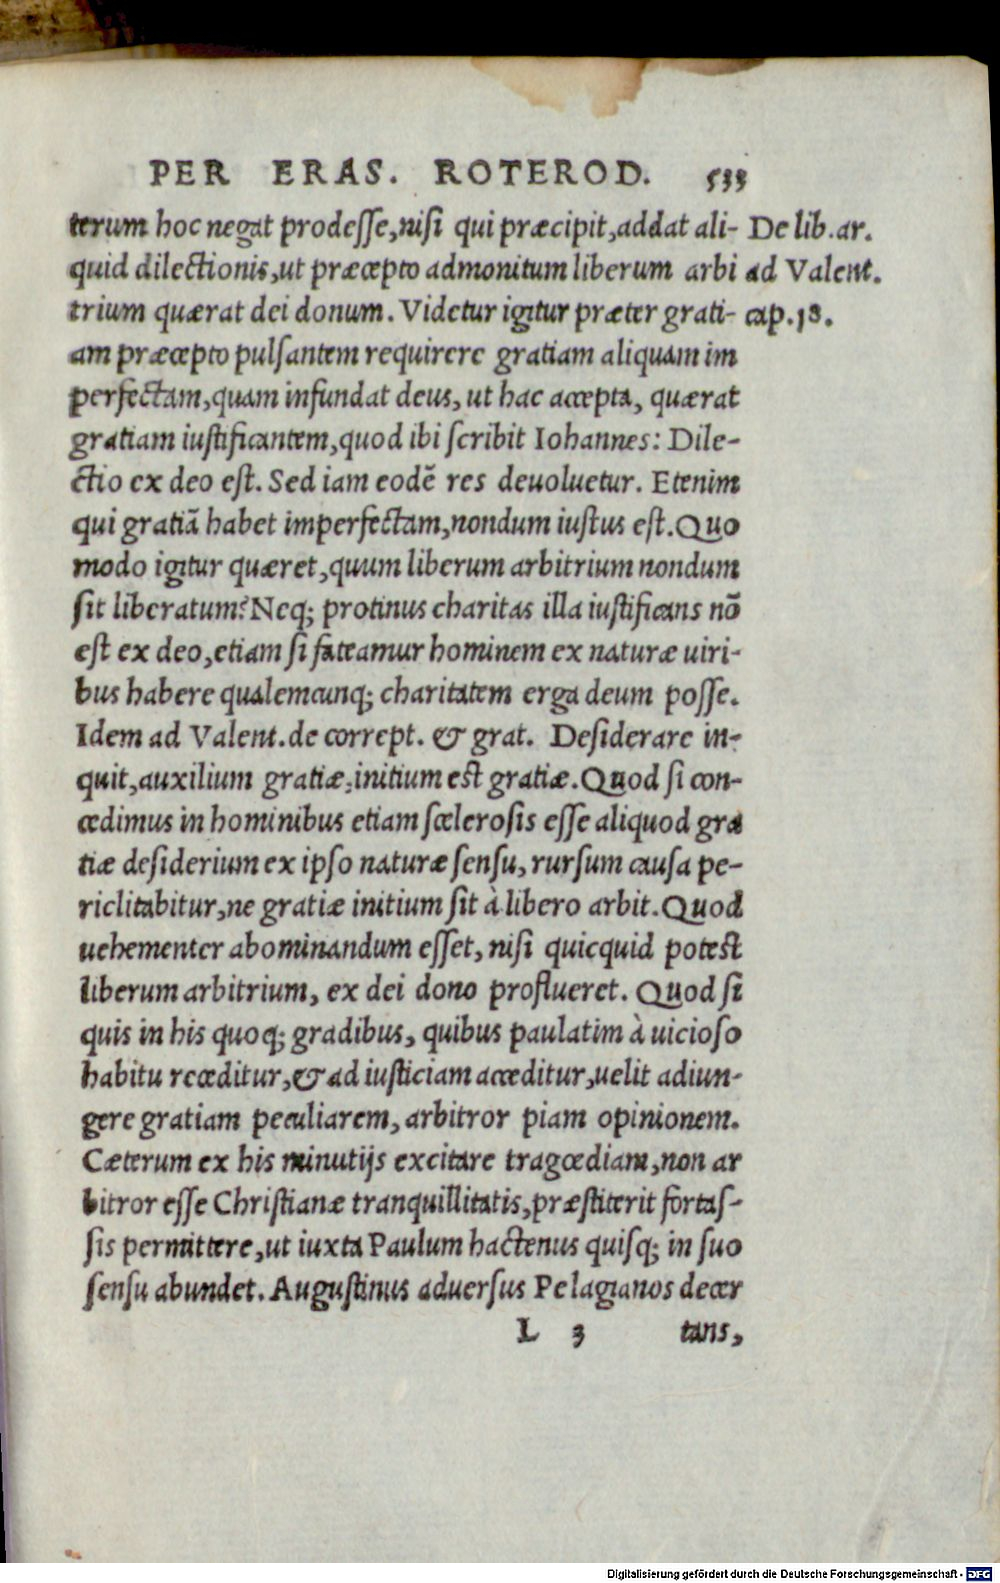 PER ERAS. ROTEROD. 533
terum hoc negat prodesse, nisi qui præcipit, addat ali- De lib. ar.
quid dilectionis, ut præcepto admonitum liberum arbi ad Valent.
trium quærat dei donum. Videtur igitur præter grati- cap. 18.
am præcepto pulsantem requirere gratiam aliquam im
perfectam, quam infundat deus, ut hac accepta, quærat
gratiam iustificantem, quod ibi scribit Iohannes: Dile-
ctio ex deo est. Sed iam eodē res deuoluetur. Etenim
qui gratiā habet imperfectam, nondum iustus est. Quo
modo igitur quæret, quum liberum arbitrium nondum
sit liberatum? Neq; protinus charitas illa iustificans nō
est ex deo, etiam si fateamur hominem ex naturæ uiri-
bus habere qualemcunq; charitatem erga deum posse.
Idem ad Valent. de corrept. & grat. Desiderare in-
quit, auxilium gratiæ, initium est gratiæ. Quod si con-
cedimus in hominibus etiam scelerosis esse aliquod gra
tiæ desiderium ex ipso naturæ sensu, rursum causa pe-
riclitabitur, ne gratiæ initium sit à libero arbit. Quod
uehementer abominandum esset, nisi quicquid potest
liberum arbitrium, ex dei dono proflueret. Quod si
quis in his quoq; gradibus, quibus paulatim à uicioso
habitu receditur, & ad iusticiam acceditur, uelit adiun-
gere gratiam peculiarem, arbitror piam opinionem.
Cæterum ex his minutijs excitare tragœdiam, non ar
bitror esse Christianæ tranquillitatis, præstiterit fortas-
sis permittere, ut iuxta Paulum hactenus quisq; in suo
sensu abundet. Augustinus aduersus Pelagianos decer
L 3 tans,
Digitalisierung gefördert durch die Deutsche Forschungsgemeinschaft - DFG